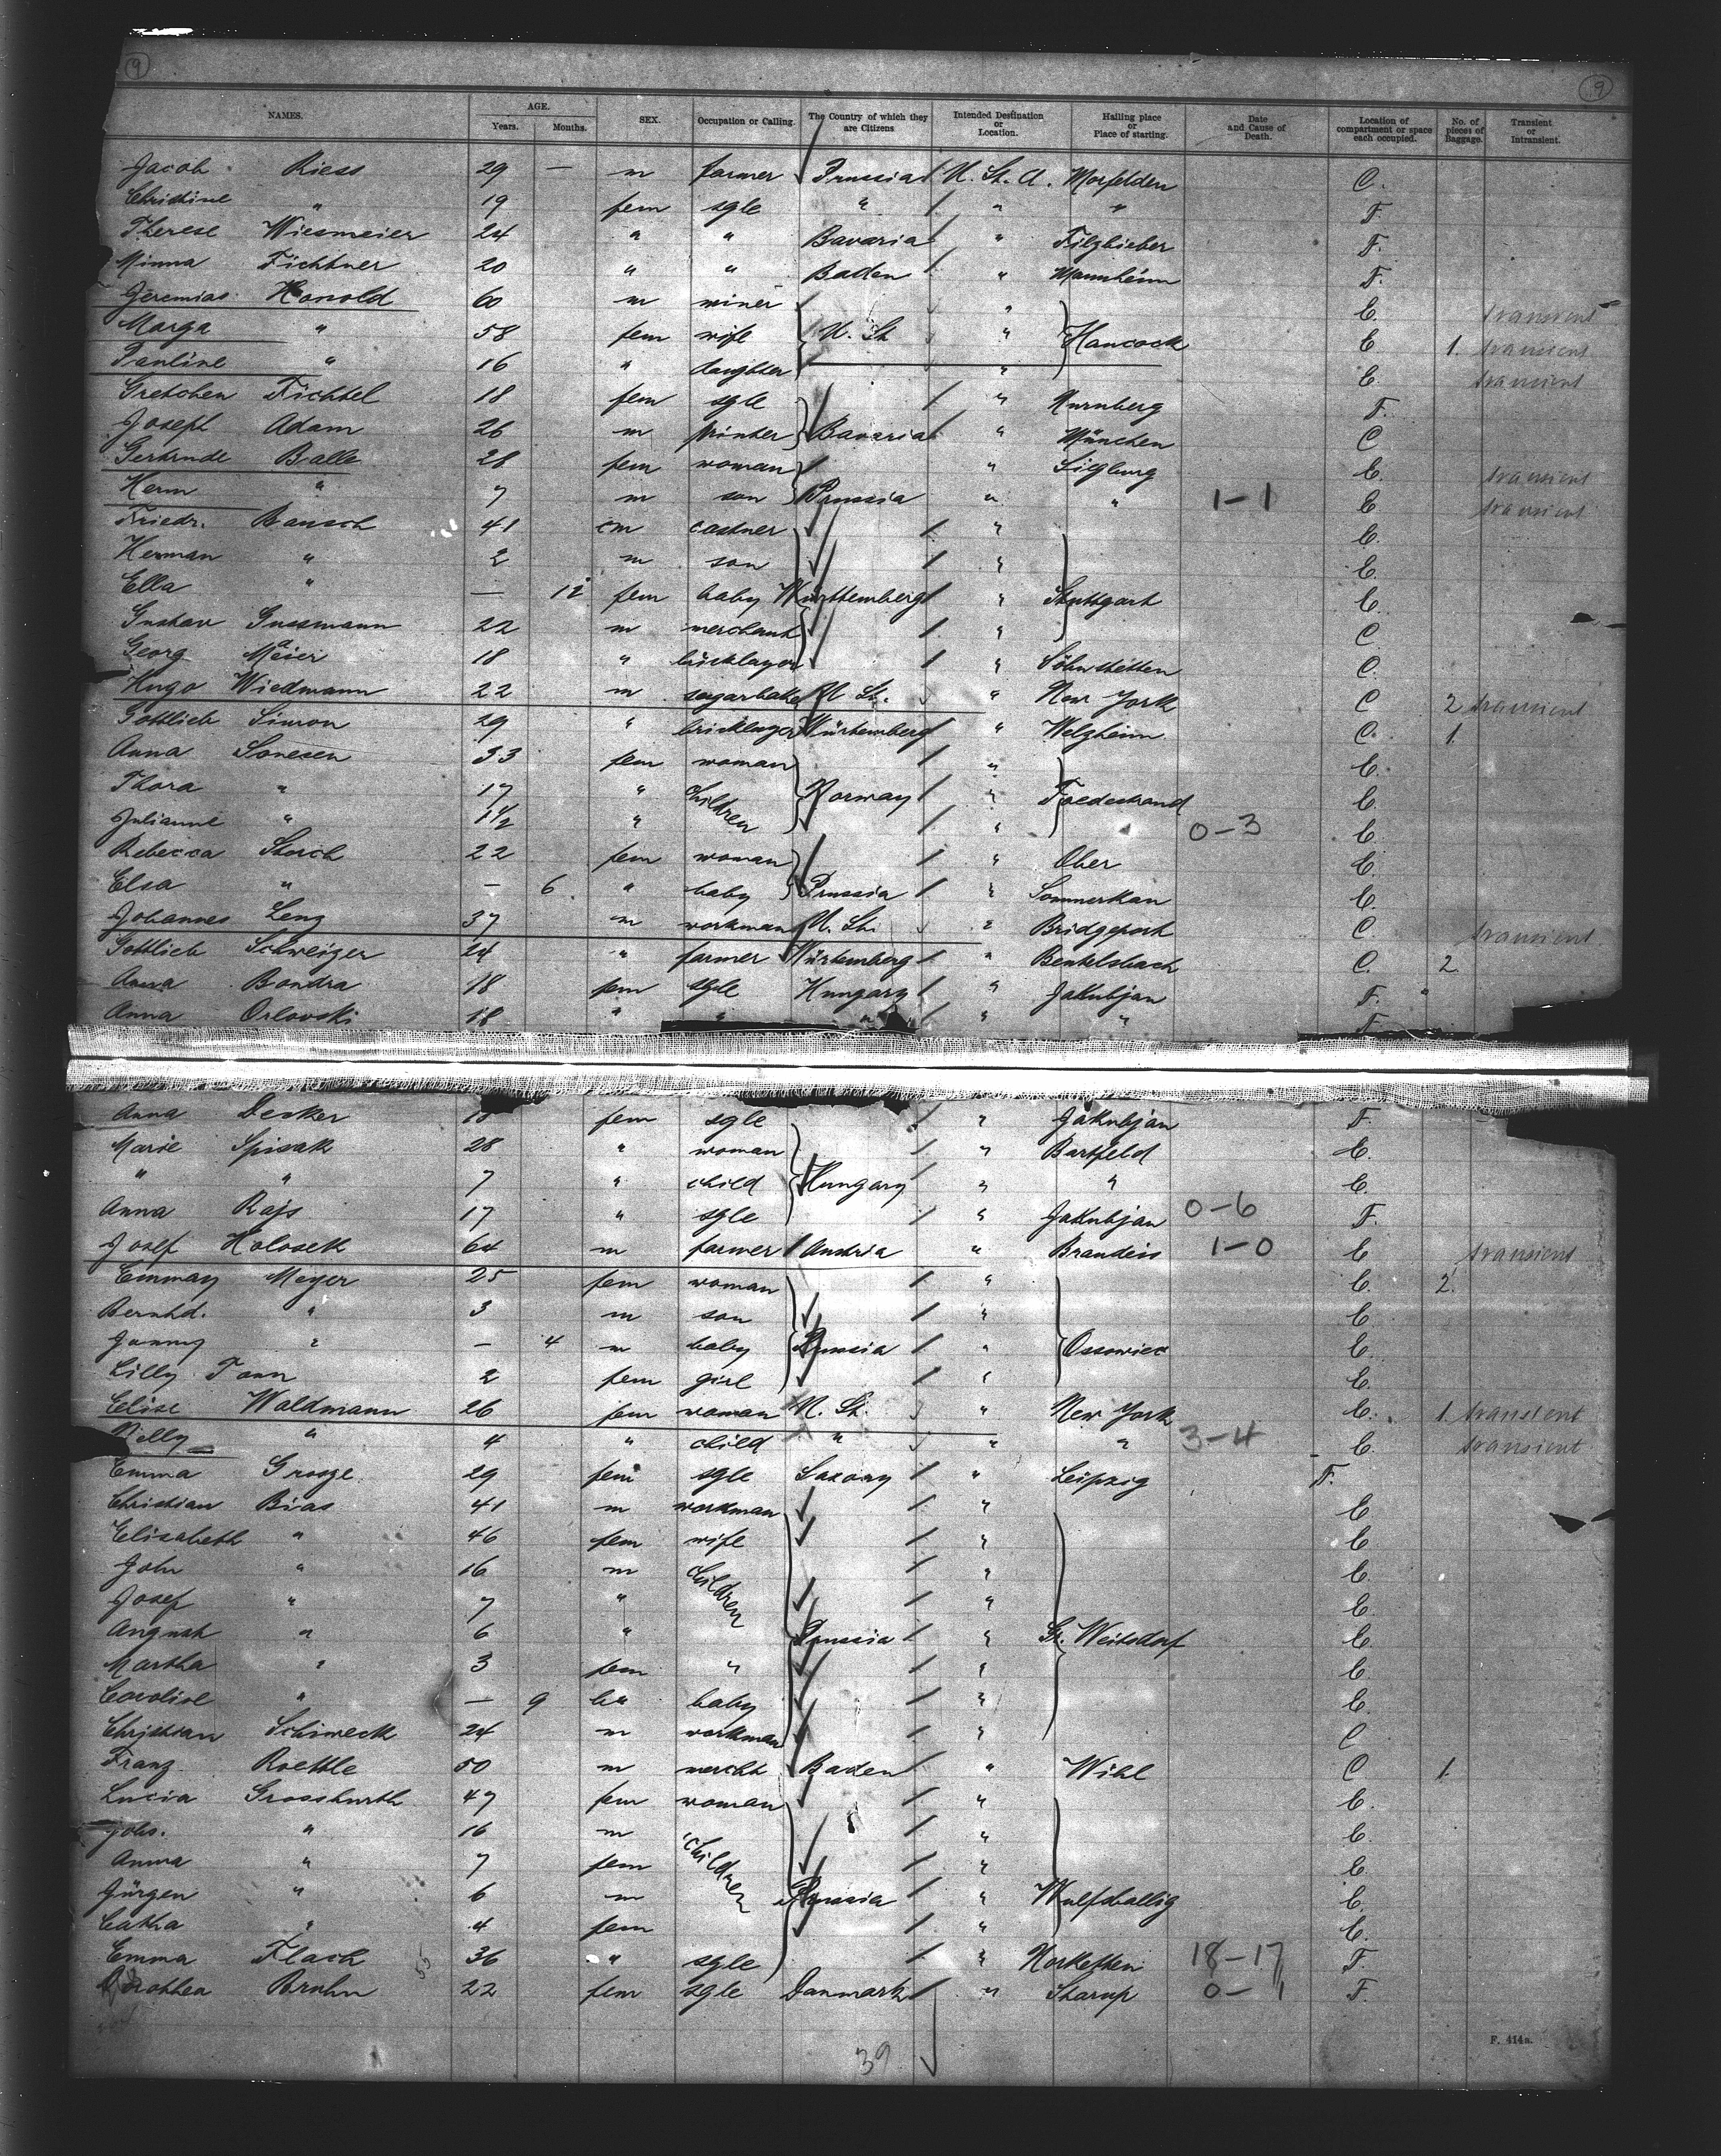 9 9
NAMES. AGE. Years. Months. SEX. Occupation or Calling. The Country of which they are Citizens Intended Destination or Location. Hailing place or Place of starting. Date and Cause of Death. Location of compartment or space each occupied. No. of pieces of Baggage. Transient or Intransient.
Jacob Riess 29 — m farmer Prussia U. St. A. Morfelden C.
Christine " 19 fem sgle " " " F.
Therese Wiesmeier 24 " " Bavaria " F.
Minna Fichtner 20 " " Baden " Mannheim F.
Jeremias Honold 60 m miner " E. transient
Marga " 58 fem wife U. St. " Hancock E. 1. transient
Pauline " 16 " daughter " E. transient
Gretchen Fichtel 18 fem sgle " Nurnberg F.
Joseph Adam 26 m printer Bavaria " München C
Gertrude Balle 28 fem woman " Siegburg E. transient
Herm " 7 m son Prussia " " 1-1 E transient
Friedr. Bausch 41 m " E.
Herman " 2 m son " E.
Ella " — 12 fem baby Württemberg " Stuttgart E.
Gustav Gussmann 22 m merchant " C
Georg Maier 18 " bricklayer " Söhnstetten C.
Hugo Wiedmann 22 m sugarbaker U. St. " New York C 2 transient
Gottlieb Simon 29 " bricklayer Würtemberg " Welzheim C. 1.
Anna Sonesen 33 fem woman " E.
Thora " 17 " children Norway " Tvedestrand E.
Julianne " 1 1/2 " " 0-3 E.
Rebecca Storch 22 fem woman " Ober E.
Elsa " — 6 " baby Prussia " Sommerkan E.
Johannes Leng 37 m workman U. St. " Bridgeport C. transient
Gottlieb Schweizer 24 " farmer Würtemberg " Beutelsbach C. 2
Anna Bondra 18 fem sgle Hungary " Jakubjan F.
Anna Orlovski 18 " " " " " F.
Anna Decker 18 fem sgle " Jakubjan F.
Marie Spisak 28 " woman " Bartfeld E.
" " 7 " child Hungary " " E.
Anna Rajs 17 " sgle " Jakubjan 0-6 F.
Josef Holosek 64 m farmer Austria " Brandeis 1-0 E transient
Emmay Meyer 25 fem woman " E. 2.
Bernhd. " 3 m son " E.
Janny " — 4 m baby Russia " Ossowiec E.
Lilly Tann 2 fem girl " E.
Elise Waldmann 26 fem woman U. St. " New York E. 1 transient
Nelly " 4 " child " " " 3-4 E. transient
Emma Grosze 29 fem sgle Saxony " Leipzig F.
Christian Bias 41 m workman " E
Elisabeth " 46 fem wife " E
John " 16 m children " E.
Josef " 7 " " E.
August " 6 " Prussia " Gr. Weitsdorf E.
Martha " 3 fem " " E.
Caroline " — 9 baby " E.
Christian Schiweck 24 m workman " C
Franz Roettle 50 m mercht Baden " Wihl C 1.
Lucia Grosshurth 47 fem woman " E.
Johs. " 16 m children " E.
Anna " 7 fem " E.
Jürgen " 6 m Prussia " Wulfshallig E.
Catha " 4 fem " E.
Emma Flack 36 " sgle " 18-17 F.
Dorothea Bruhn 22 fem sgle Danmark " Starup 0-1 F.
39
F. 414a.